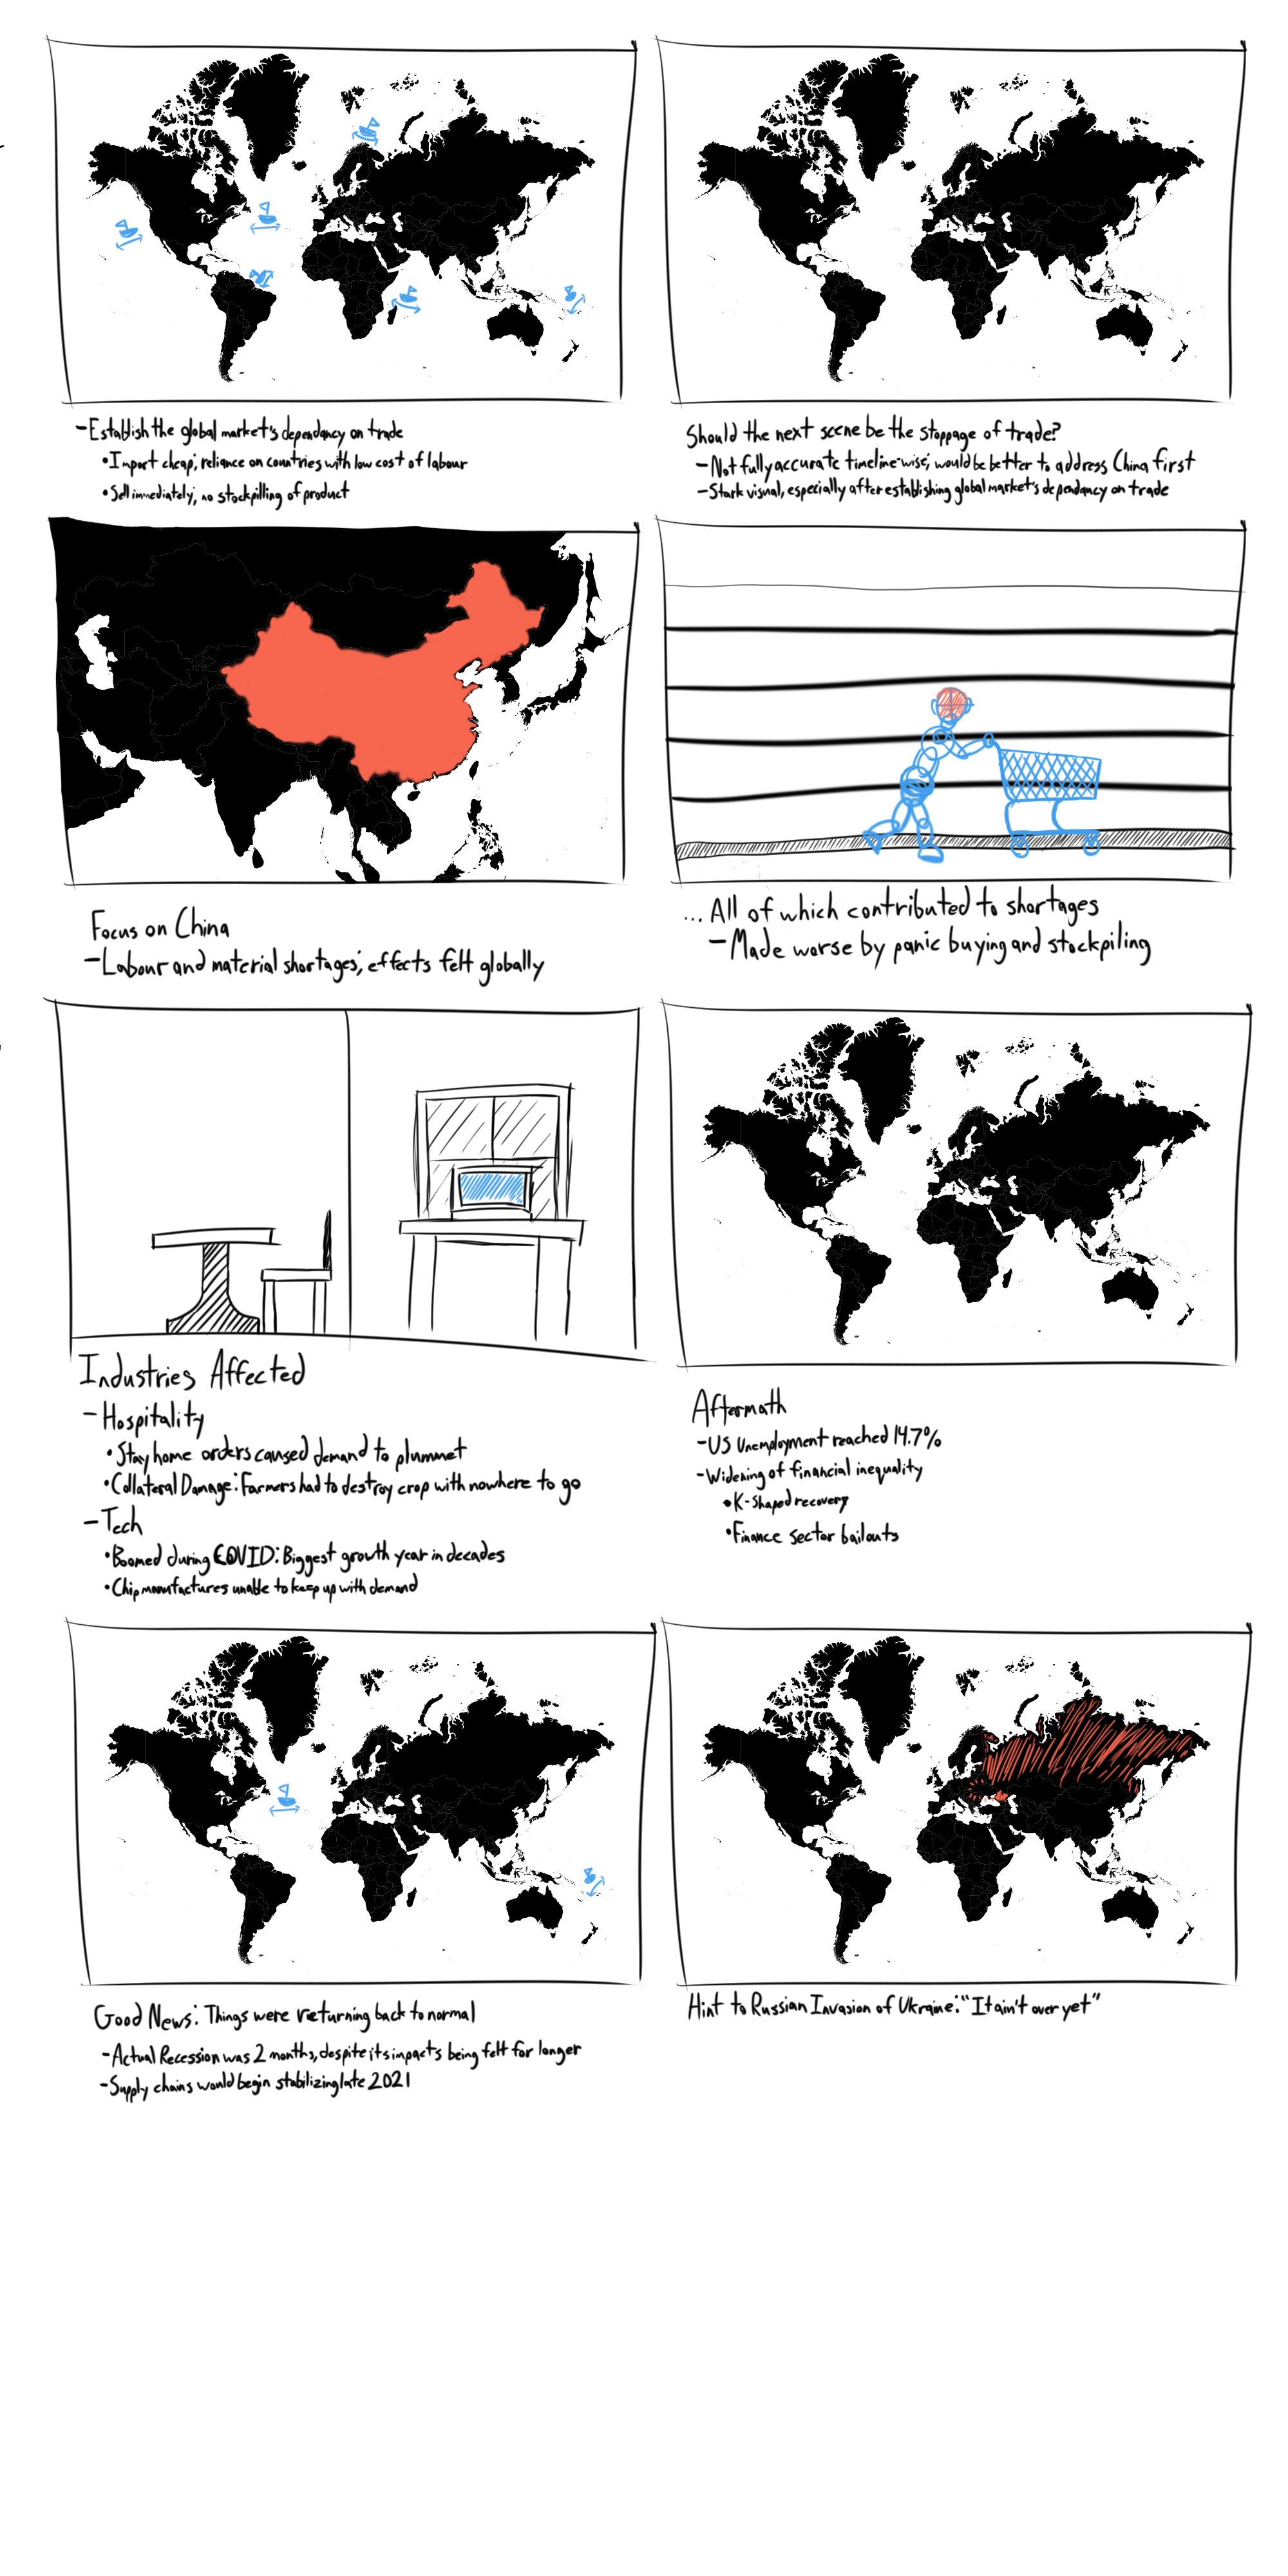 - Establish the global market's dependancy on trade
• Import cheap; reliance on countries with low cost of labour
• Sell immediately; no stockpilling of product
Should the next scene be the stoppage of trade?
- Not fully accurate timeline-wise; would be better to address China first
- Stark visual, especially after establishing global market's dependancy on trade
Focus on China
- Labour and material shortages; effects felt globally
... All of which contributed to shortages
- Made worse by panic buying and stockpiling
Industries Affected
- Hospitality
• Stay home orders caused demand to plummet
• Collateral Damage: Farmers had to destroy crop with nowhere to go
- Tech
• Boomed during COVID: Biggest growth year in decades
• Chip manufactures unable to keep up with demand
Aftermath
- US Unemployment reached 14.7%
- Widening of financial inequality
• K-Shaped recovery
• Finance sector bailouts
Good News: Things were returning back to normal
- Actual Recession was 2 months, despite its impacts being felt for longer
- Supply chains would begin stabilizing late 2021
Hint to Russian Invasion of Ukraine: "It ain't over yet"